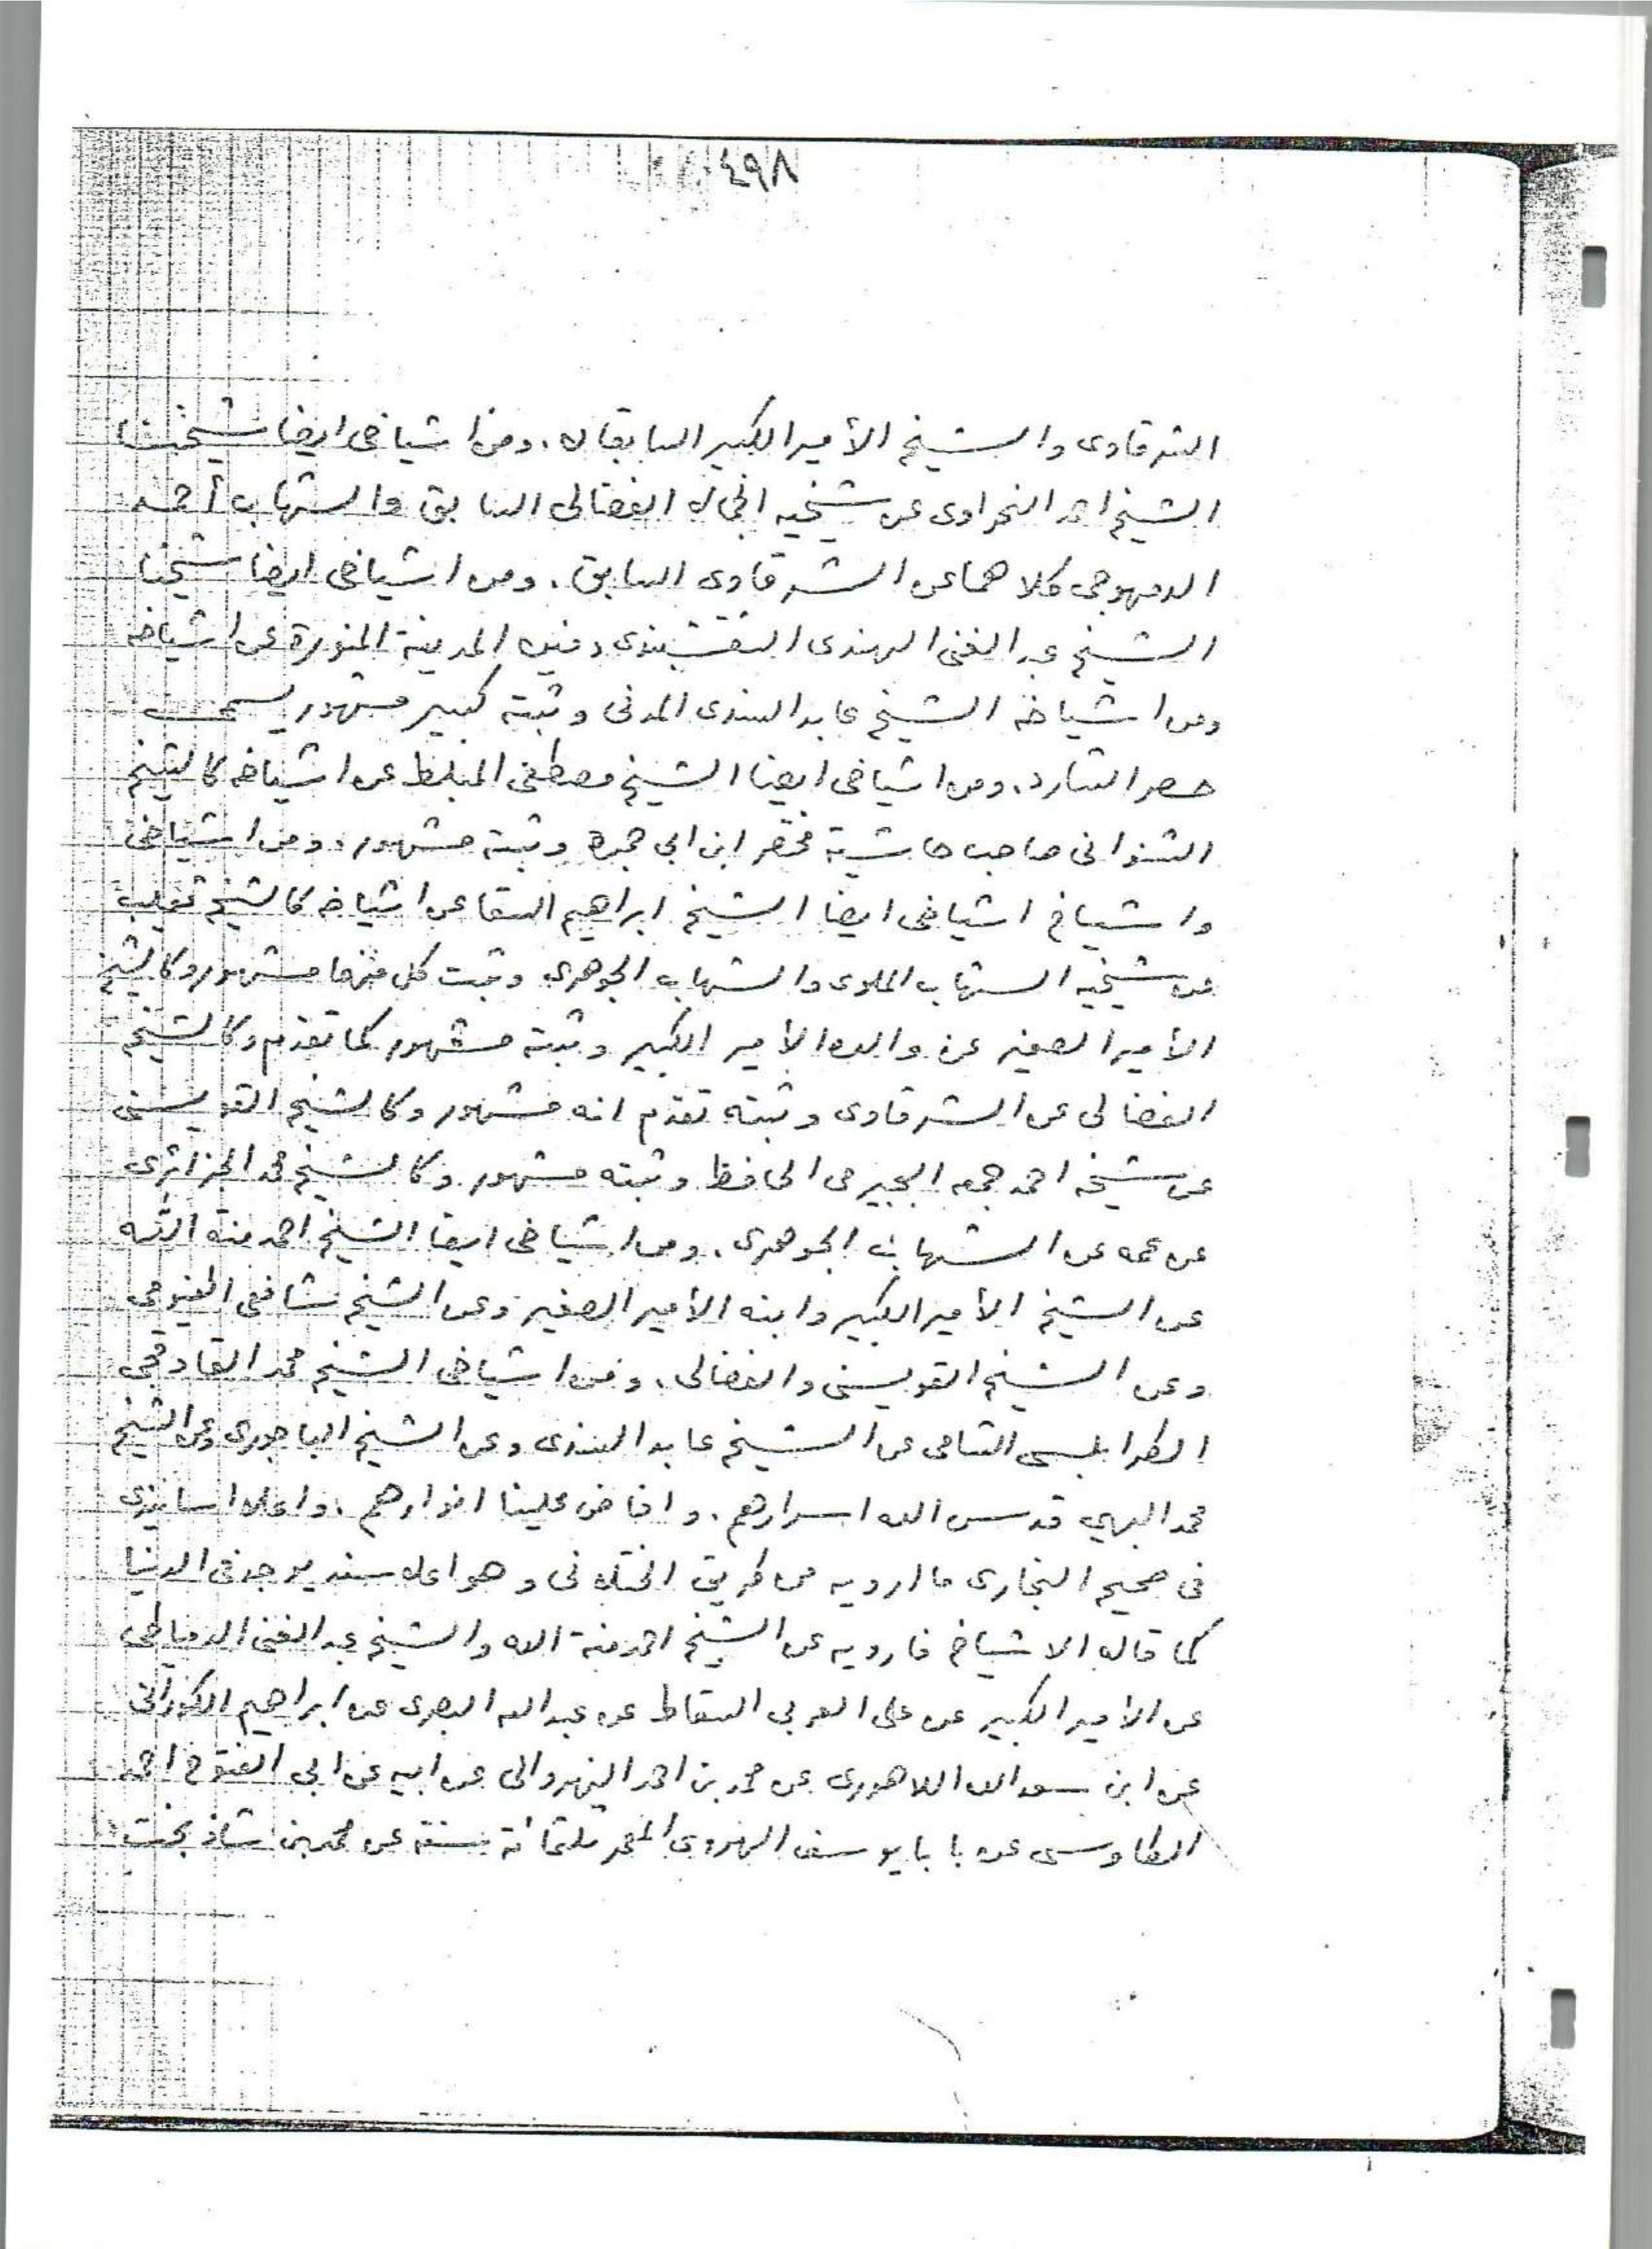 ٤٩٨
الشرقاوى والشيخ الأمير الكبير السابقان. ومن اشياخى ايضا شيخنا
الشيخ احمد النحراوى عن شيخيه الفضالى السابق والشهاب أحمد
الدمهوجى كلاهما عن الشرقاوى السابق. ومن اشياخى ايضا شيخنا
الشيخ عبد الغنى الهندى النقشبندى دفين المدينة المنورة عن اشياخه
ومن اشياخه الشيخ عابد السندى المدنى وثبته كبير مشهور يسمى
حصر الشارد. ومن اشياخى ايضا الشيخ مصطفى المبلط عن اشياخه كالشيخ
الشنوانى صاحب حاشية مختصر ابن ابى جمره وثبته مشهور. ومن اشياخى
واشياخ اشياخى ايضا الشيخ ابراهيم السقا عن اشياخه كالشيخ ثعيلب
عن شيخيه الشهاب الملوى والشهاب الجوهرى وثبت كل منهما مشهور وكالشيخ
الأمير الصغير عن والده الأمير الكبير وثبته مشهور كما تقدم وكالشيخ
الفضالى عن الشرقاوى وثبته تقدم انه مشهور وكالشيخ القويسنى
عن شيخه احمد جمعه البجيرمى الحافظ وثبته مشهور. وكالشيخ محمد الجزائرى
عن عمه عن الشهاب الجوهرى. ومن اشياخى ايضا الشيخ احمد منة الله
عن الشيخ الأمير الكبير وابنه الأمير الصغير وعن الشيخ شافعى الفيومى
وعن الشيخ القويسنى والفضالى. ومن اشياخى الشيخ محمد القاوقجى
الطرابلسى الشامى عن الشيخ عابد السندى وعن الشيخ الباجورى وعن الشيخ
محمد البهى قدس الله اسرارهم. وافاض علينا انوارهم. واعلا اسانيدى
فى صحيح البخارى ما ارويه من طريق الختلانى وهو اعلا سند يوجد فى الدنيا
كما قاله الاشياخ فارويه عن الشيخ احمد منة الله والشيخ عبد الغنى الدمياطى
عن الأمير الكبير عن على العربى السقاط عن عبد الله البصرى عن ابراهيم الكورانى
عن ابن سعد الله اللاهورى عن محمد بن احمد النهروالى عن ابيه عن ابى الفتوح احمد
الطاوسى عن بابا يوسف الهروى المعمر ثلثمائة سنة عن محمد بن شاذ بخت